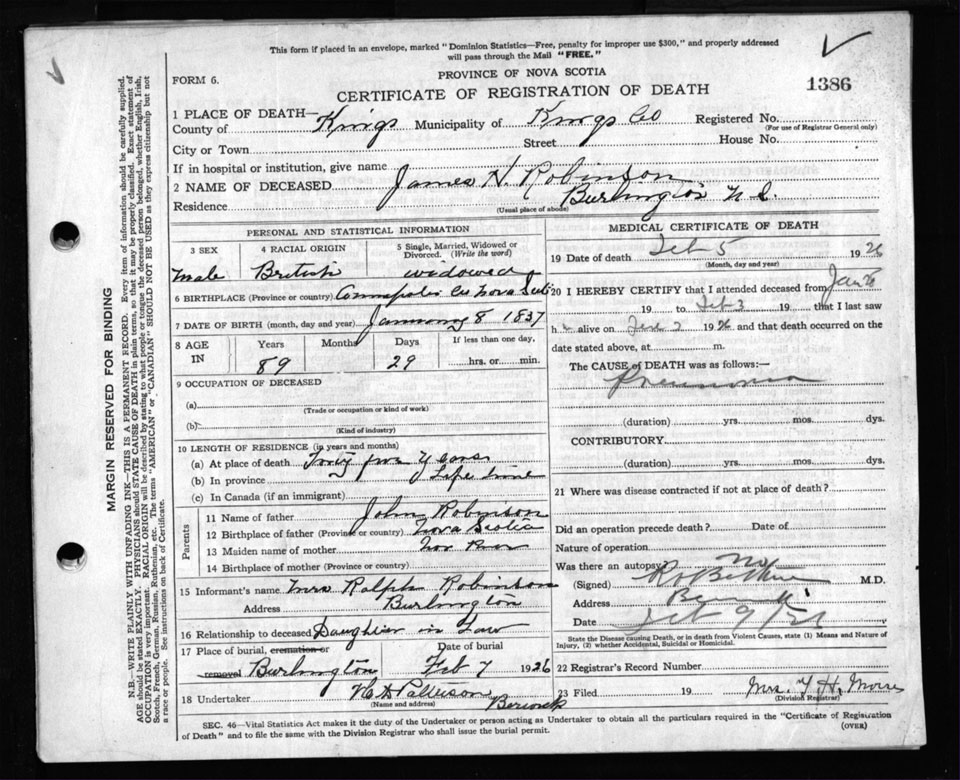 This form if placed in an envelope, marked "Dominion Statistics—Free, penalty for improper use $300," and properly addressed
will pass through the Mail "FREE."
FORM 6.
PROVINCE OF NOVA SCOTIA
CERTIFICATE OF REGISTRATION OF DEATH
1386
1 PLACE OF DEATH—
County of Kings Municipality of Kings Co Registered No.
(For use of Registrar General only)
City or Town Street House No.
If in hospital or institution, give name
2 NAME OF DECEASED James H. Robinson
Residence Burlington N.S.
(Usual place of abode)
PERSONAL AND STATISTICAL INFORMATION
3 SEX 4 RACIAL ORIGIN 5 Single, Married, Widowed or Divorced. (Write the word)
male British widowed
6 BIRTHPLACE (Province or country) Annapolis Co Nova Scotia
7 DATE OF BIRTH (month, day and year) January 8 1837
8 AGE IN Years Months Days If less than one day,
89 29 hrs. or min.
9 OCCUPATION OF DECEASED
(a)
(Trade or occupation or kind of work)
(b)
(Kind of industry)
10 LENGTH OF RESIDENCE (in years and months)
(a) At place of death years
(b) In province Life time
(c) In Canada (if an immigrant)
Parents
11 Name of father John Robinson
12 Birthplace of father (Province or country) Nova Scotia
13 Maiden name of mother
14 Birthplace of mother (Province or country)
15 Informant's name Mrs Ralph Robinson
Address Burlington
16 Relationship to deceased Daughter in Law
17 Place of burial, cremation or removal Date of burial
Burlington Feb 7 1926
18 Undertaker Pattison
(Name and address) Berwick
MEDICAL CERTIFICATE OF DEATH
19 Date of death Feb 5 1926
(Month, day and year)
20 I HEREBY CERTIFY that I attended deceased from Jan 26
19 to Feb 3 19 that I last saw
h alive on 2 1926 and that death occurred on the
date stated above, at m.
The CAUSE OF DEATH was as follows:—
pneumonia
(duration) yrs. mos. dys.
CONTRIBUTORY
(duration) yrs. mos. dys.
21 Where was disease contracted if not at place of death?
Did an operation precede death? Date of
Nature of operation
Was there an autopsy? no
(Signed) M.D.
Address Berwick
Date Feb 9/26
State the Disease causing Death, or in death from Violent Causes, state (1) Means and Nature of
Injury, (2) whether Accidental, Suicidal or Homicidal.
22 Registrar's Record Number
23 Filed 19 Mrs. H. Morse
(Division Registrar)
SEC. 46—Vital Statistics Act makes it the duty of the Undertaker or person acting as Undertaker to obtain all the particulars required in the "Certificate of Registration
of Death" and to file the same with the Division Registrar who shall issue the burial permit.
(OVER)
MARGIN RESERVED FOR BINDING
N.B.—WRITE PLAINLY WITH UNFADING INK—THIS IS A PERMANENT RECORD. Every item of information should be carefully supplied.
AGE should be stated EXACTLY. PHYSICIANS should STATE CAUSE OF DEATH in plain terms, so that it may be properly classified. Exact statement of
OCCUPATION is very important. RACIAL ORIGIN will be described by stating to what people or tongue the deceased person belonged, whether English, Irish,
Scotch, French, German, Russian, Ruthenian, etc. The terms "AMERICAN" or "CANADIAN" SHOULD NOT BE USED as they express citizenship but not
a race or people. See instructions on back of Certificate.